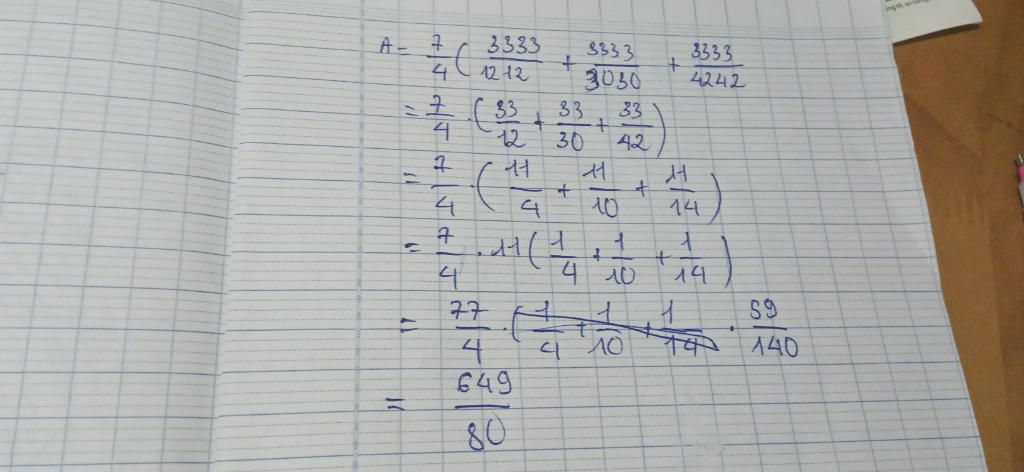 A = 7/4 ( 3333/1212 + 3333/3030 + 3333/4242
= 7/4 . ( 33/12 + 33/30 + 33/42 )
= 7/4 . ( 11/4 + 11/10 + 11/14 )
= 7/4 . 11 ( 1/4 + 1/10 + 1/14 )
= 77/4 . ( 1/4 + 1/10 + 1/14 ) . 59/140
= 649/80